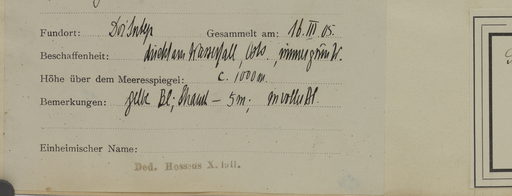 Fundort: Doi Sutep Gesammelt am: 16. III. 05.
Beschaffenheit: dicht am Wasserfall,
Höhe über dem Meeresspiegel: c. 1000 m
Bemerkungen: gelbe Bl; Strauch – 5m; in voller Bl.
Einheimischer Name:
Ded. Hosseus X. 1911.